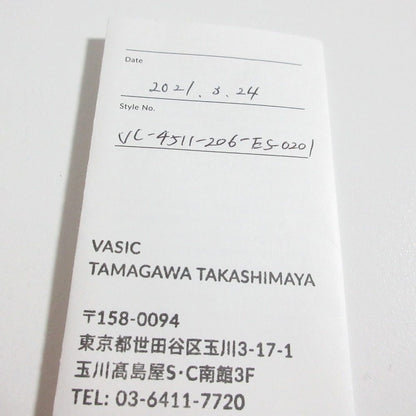 Date
2021.3.24
Style No.
VL-4511-206-ES-0201
VASIC
TAMAGAWA TAKASHIMAYA
〒158-0094
東京都世田谷区玉川3-17-1
玉川髙島屋S・C南館3F
TEL: 03-6411-7720